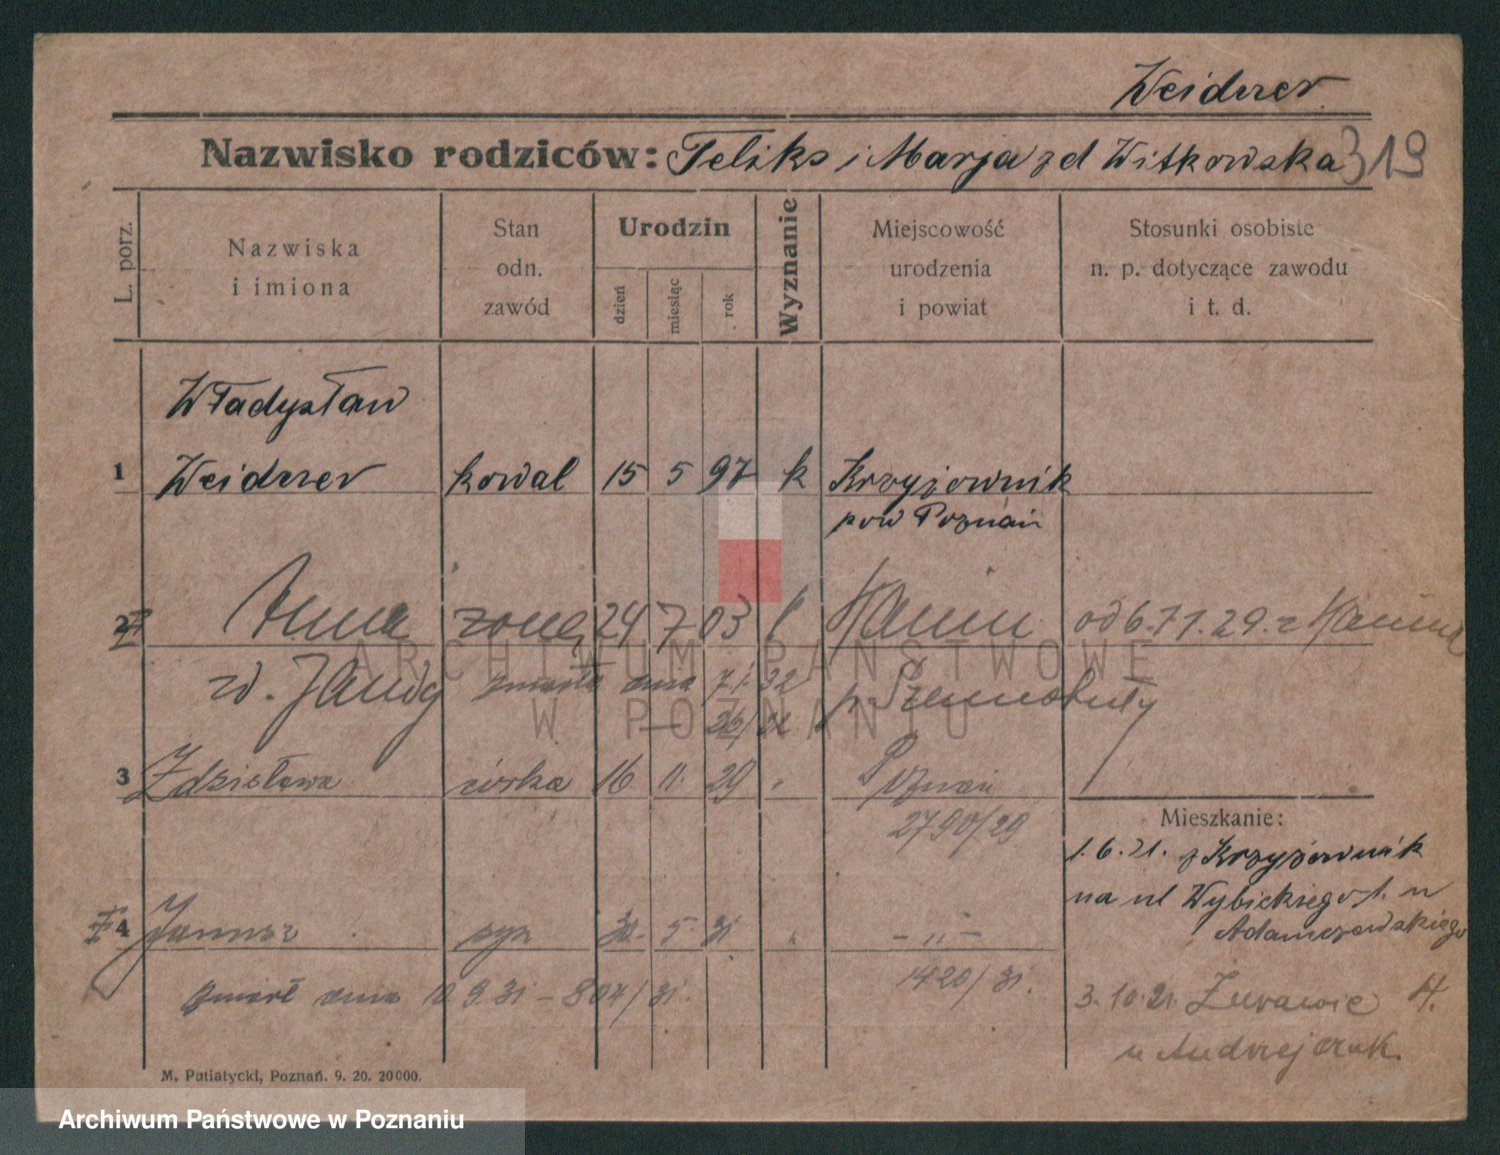 Weidner
Nazwisko rodziców: Feliks i Marja zd Witkowska 319
L. porz.
Nazwiska
i imiona
Stan
odn.
zawód
Urodzin
dzień
miesiąc
rok
Wyznanie
Miejscowość
urodzenia
i powiat
Stosunki osobiste
n. p. dotyczące zawodu
i t. d.
Władysław
1 Weidner kowal 15 5 97 k Krzyżownik
pow Poznań
2 Anna żona 24 7 03
zmarła dnia
3 Zdzisława córka 16 11. 29 Poznań
2790/29
Mieszkanie:
1.6.21. z Krzyżownik
na ul Wybickiego 1. u
Adamczewskiego
4 Janusz syn 5 31 - " -
1420/31.
zmarł dnia 9.31 - 804/31.
3.10.21. Żurawie 4.
u Andrzejczak.
M. Putiatycki, Poznań. 9. 20. 20000.
ARCHIWUM PAŃSTWOWE
W POZNANIU
Archiwum Państwowe w Poznaniu